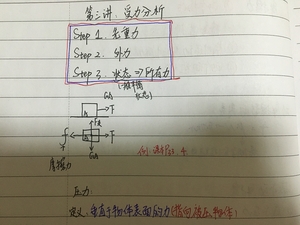 第二讲：受力分析
Step 1. 先重力
Step 2. 外力
Step 3. 状态 => 所有力
F
F
f
摩擦力
压力
定义：垂直于物体表面的力(指向被压物体)